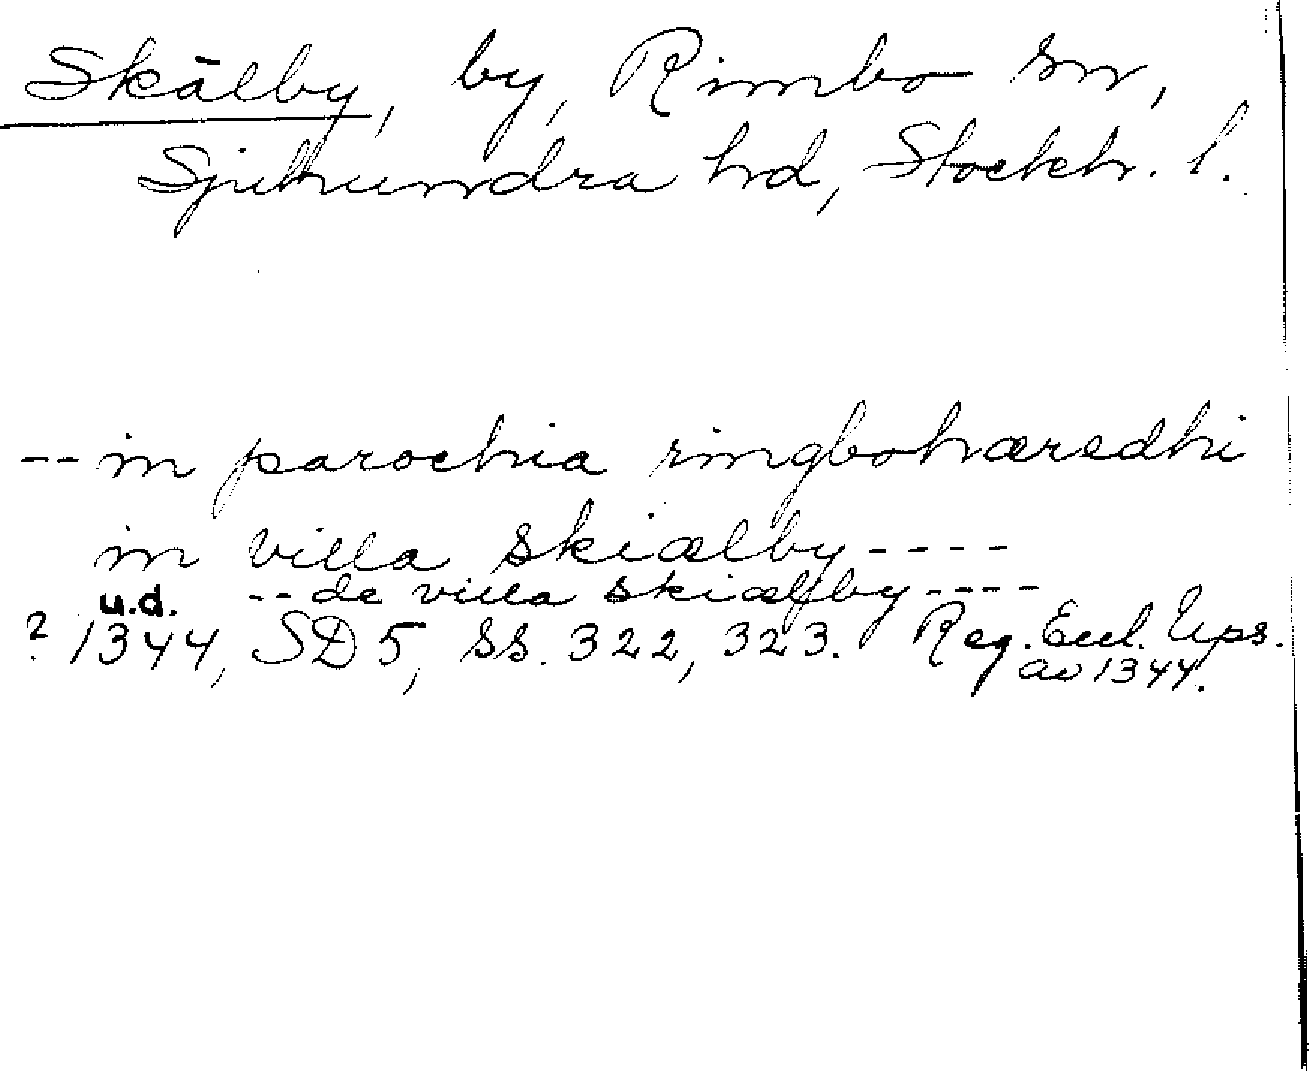 Skälby, by, Rimbo sn,
Sjuhundra hd, Stockh. l.
-- in parochia ringbohæredhi
in villa skiælby----
-- de villa skiælfby----
u.d.
? 1344, SD 5, ss. 322, 323. Reg. Eccl. Ups.
av 1344.